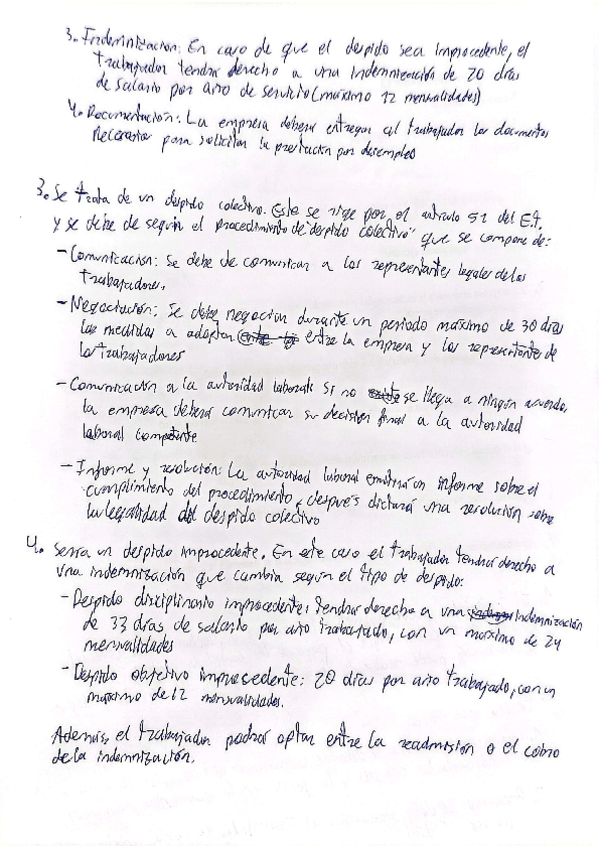 3. Indemnización: En caso de que el despido sea improcedente, el
trabajador tendrá derecho a una indemnización de 20 días
de salario por año de servicio (máximo 12 mensualidades)
4. Documentación: La empresa deberá entregar al trabajador los documentos
necesarios para solicitar la prestación por desempleo
3. Se trata de un despido colectivo. Este se rige por el artículo 51 del E.T.
y se debe de seguir el procedimiento de "despido colectivo" que se compone de:
- Comunicación: Se debe de comunicar a los representantes legales de los
trabajadores.
- Negociación: Se debe negociar durante un periodo máximo de 30 días
las medidas a adoptar entre la empresa y los representante de
los trabajadores
- Comunicación a la autoridad laboral: Si no se llega a ningún acuerdo,
la empresa deberá comunicar su decisión final a la autoridad
laboral competente
- Informe y resolución: La autoridad laboral emitirá un informe sobre el
cumplimiento del procedimiento y después dictará una resolución sobre
la legalidad del despido colectivo
4. Sería un despido improcedente. En este caso el trabajador tendrá derecho a
una indemnización que cambia según el tipo de despido:
- Despido disciplinario improcedente: tendrá derecho a una indemnización
de 33 días de salario por año trabajado, con un máximo de 24
mensualidades
- Despido objetivo improcedente: 20 días por año trabajado, con un
máximo de 12 mensualidades.
Además, el trabajador podrá optar entre la readmisión o el cobro
de la indemnización.